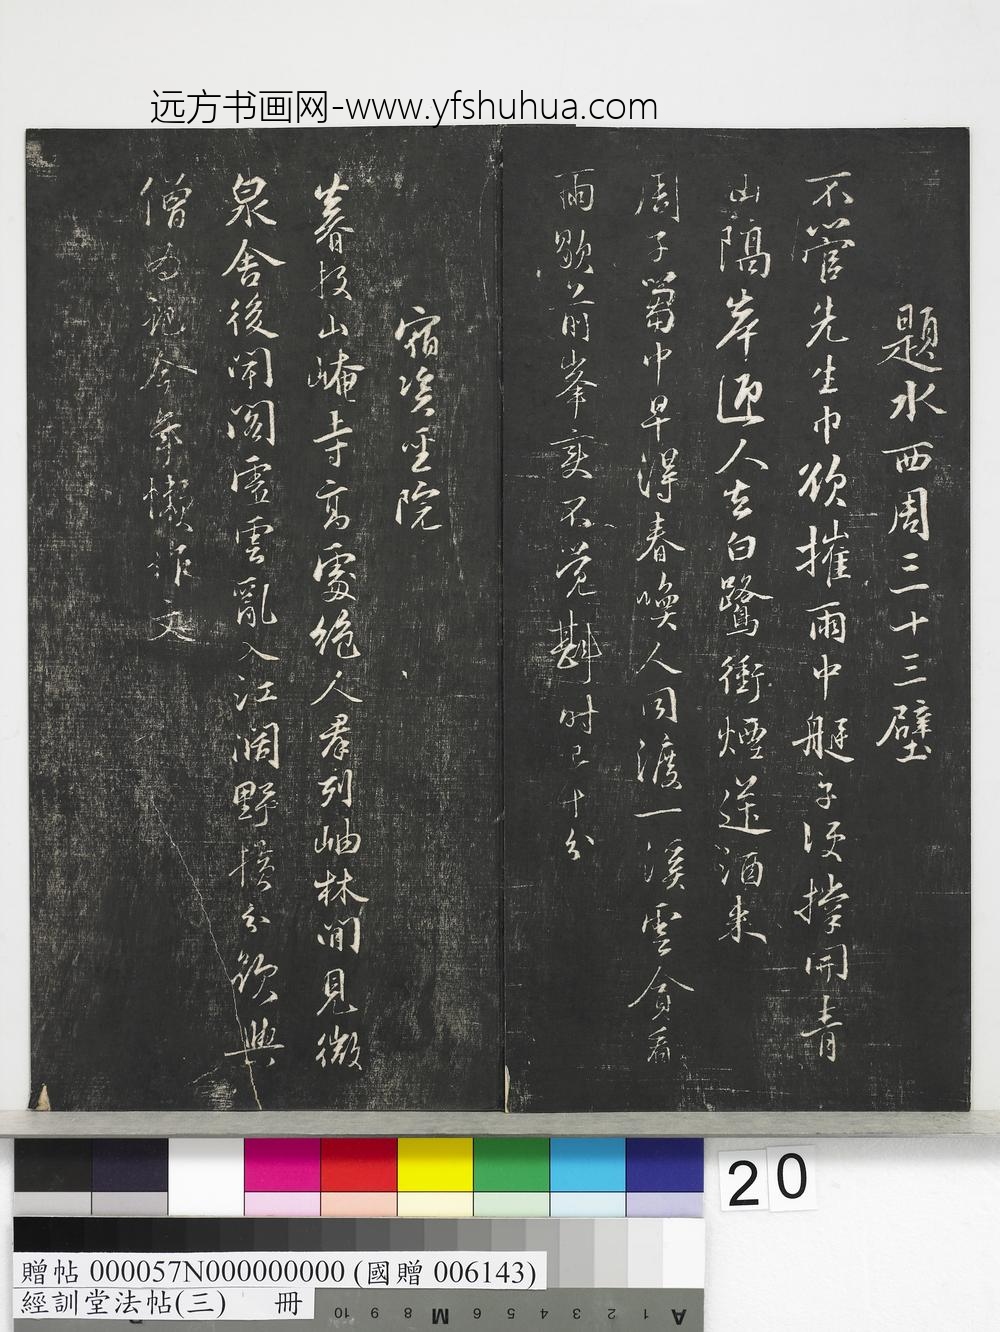 远方书画网-www.yfshuhua.com
題水西周三十三壁
不管先生巾欲摧雨中艇子便撑開青
山隔岸迎人去白鷺衝煙送酒來
周子篘中早得春喚人同渡一溪雲貪看
雨歇前峯變不覺斟時已十分
宿資聖院
暮投山崦寺高處絶人羣列岫林間見微
泉舍後聞閣虛雲亂入江闊野橫分欲與
僧為記今年懶作文
20
贈帖 000057N000000000 (國贈 006143)
經訓堂法帖(三) 冊
10 9 8 M 6 5 4 3 2 1 A